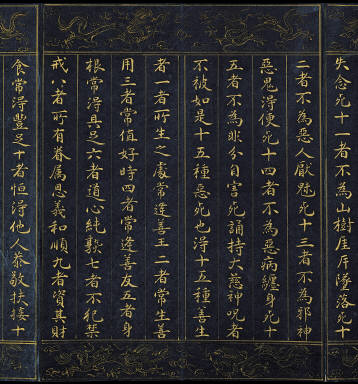 失念死十一者不為山樹崖岸墜落死十
二者不為惡人厭魅死十三者不為邪神
惡鬼淂便死十四者不為惡病纏身死十
五者不為非分自害死誦持大慈神呪者
不被如是十五種惡死也淂十五種善生
者一者所生之處常逢善王二者常生善
用三者常值好時四者常逢善友五者身
根常淂具足六者道心純熟七者不犯禁
戒八者所有眷属恩義和順九者資其財
食常淂豐足十者恒淂他人恭敬扶接十